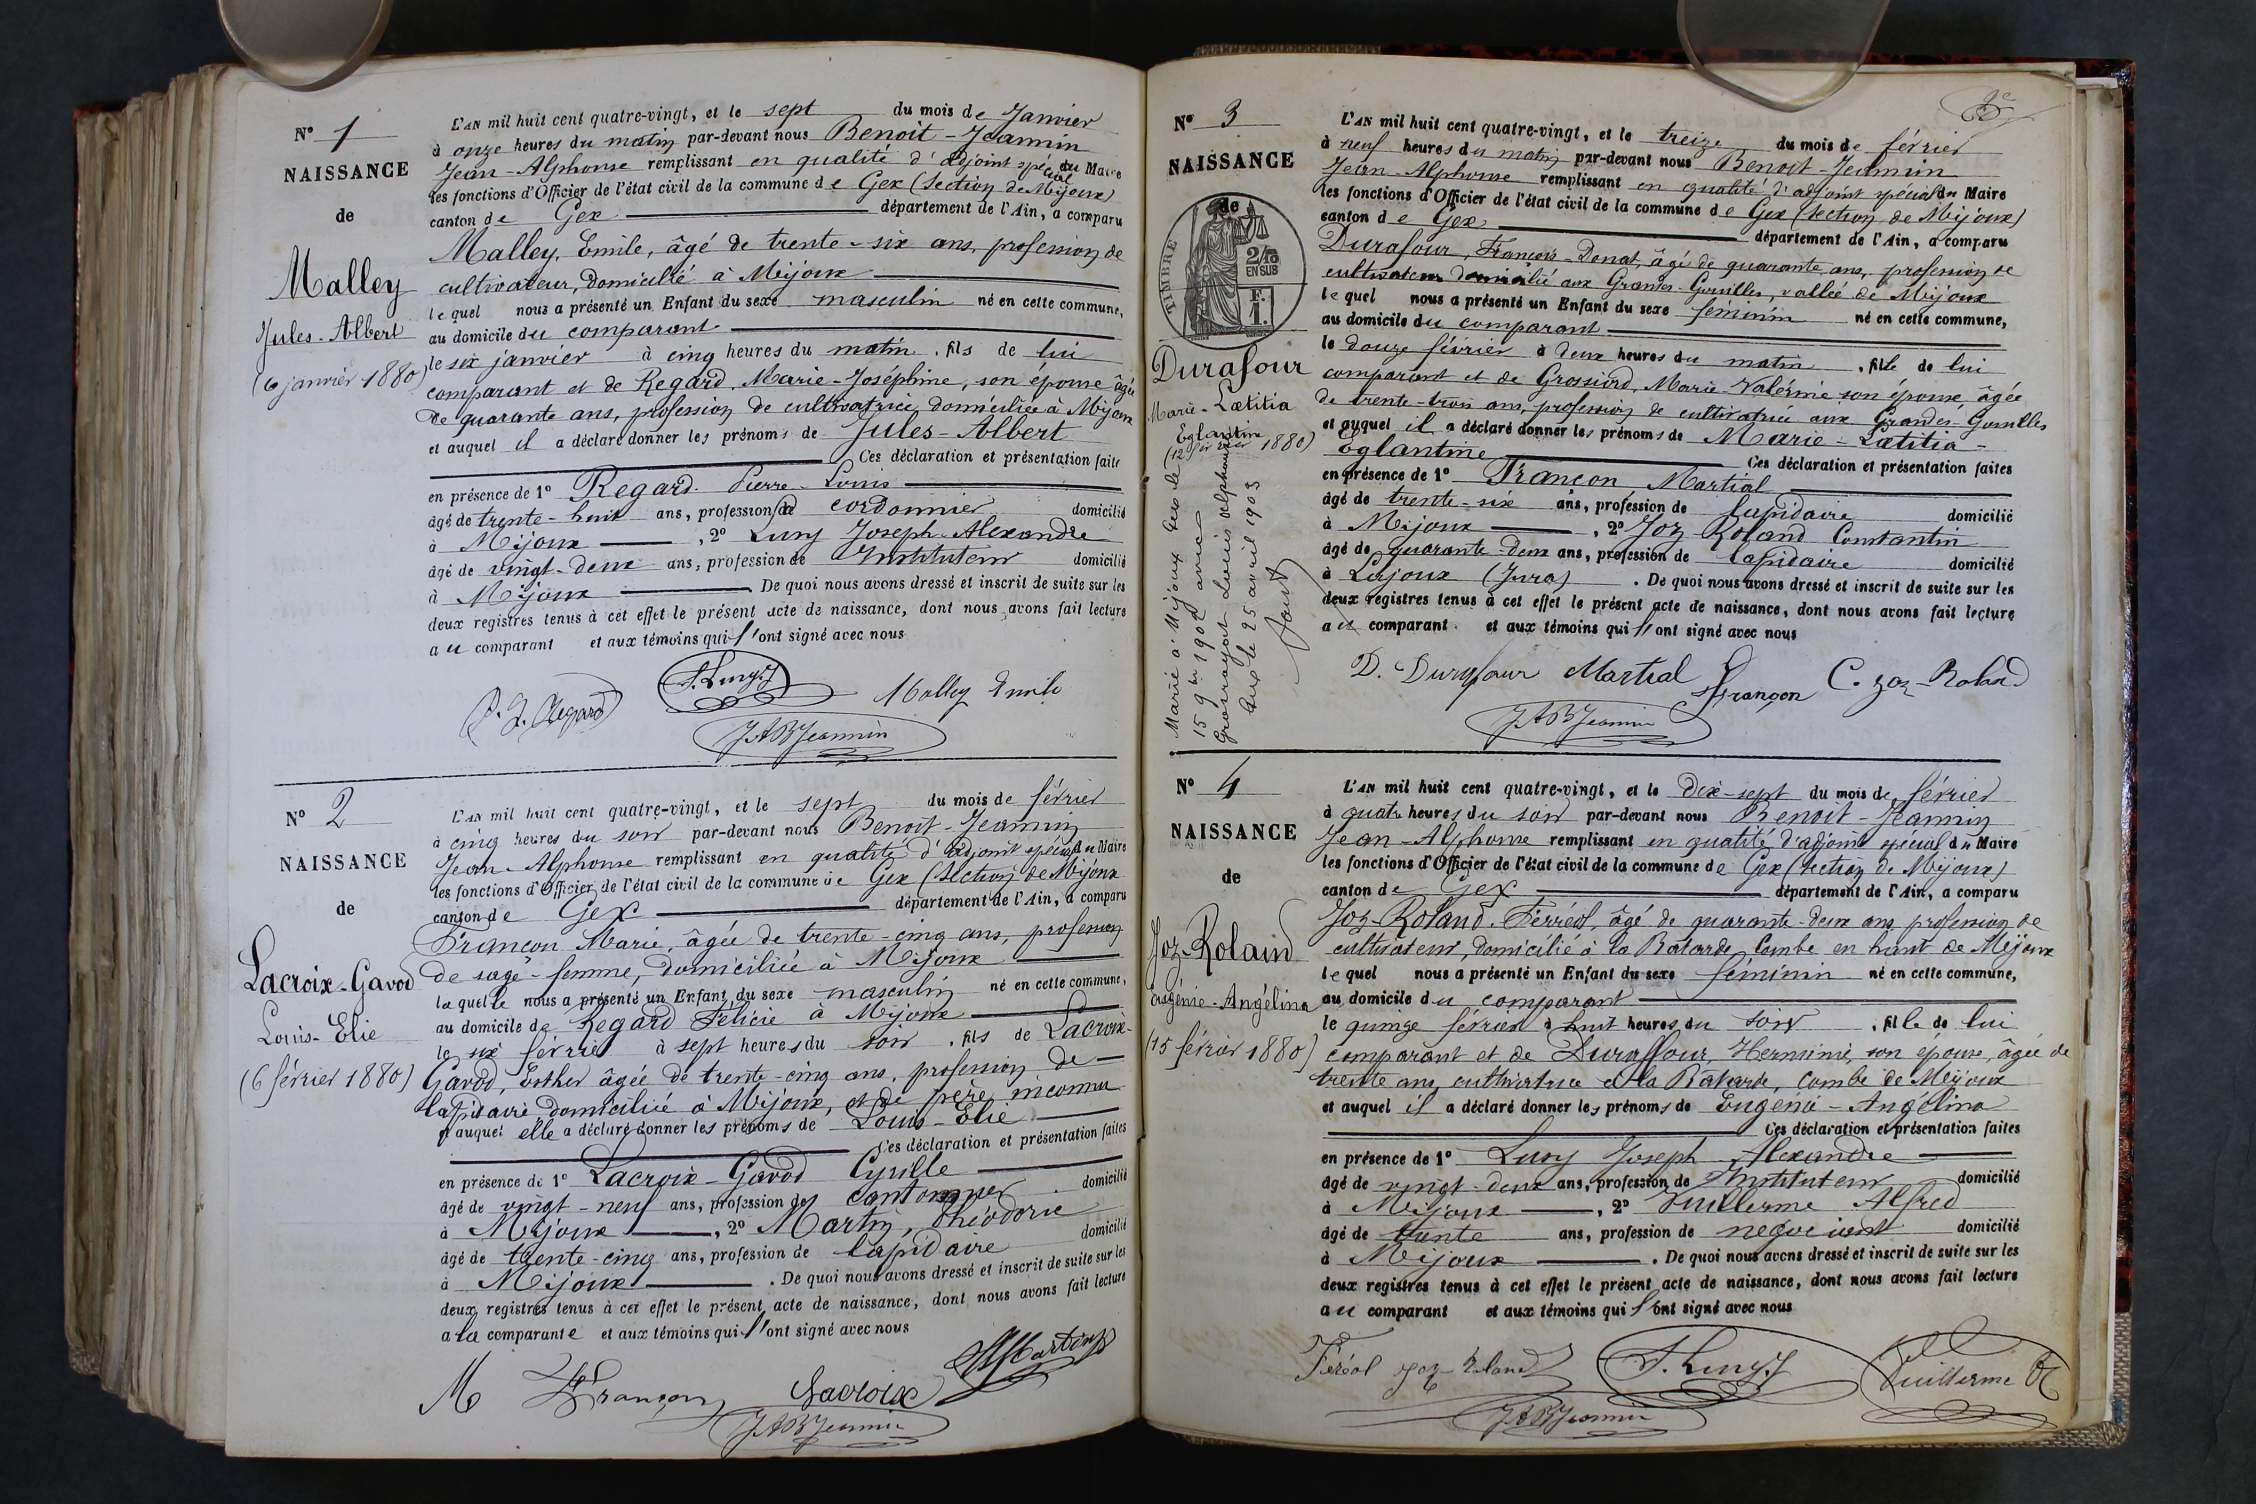 N° 1
NAISSANCE
de
Malley
Jules-Albert
(6 janvier 1880)
L'AN mil huit cent quatre-vingt, et le sept du mois de Janvier
à onze heures du matin par-devant nous Benoit-Jeannin
Jean-Alphonse remplissant en qualité d'adjoint spécial du Maire
les fonctions d'Officier de l'état civil de la commune de Gex (Section de Mijoux)
canton de Gex département de l'Ain, a comparu
Malley, Emile, âgé de trente-six ans, profession de
cultivateur, domicilié à Mijoux
lequel nous a présenté un Enfant du sexe masculin né en cette commune,
au domicile du comparant
le six janvier à cinq heures du matin, fils de lui
comparant et de Regard, Marie-Joséphine, son épouse âgée
de quarante ans, profession de cultivatrice domiciliée à Mijoux
et auquel il a déclaré donner les prénoms de Jules-Albert
Ces déclaration et présentation faites
en présence de 1° Regard Pierre-Louis
âgé de trente-huit ans, profession de cordonnier domicilié
à Mijoux, 2° Luny Joseph-Alexandre
âgé de vingt-deux ans, profession de Instituteur domicilié
à Mijoux De quoi nous avons dressé et inscrit de suite sur les
deux registres tenus à cet effet le présent acte de naissance, dont nous avons fait lecture
au comparant et aux témoins qui l'ont signé avec nous
P. L. Regard J. Luny Malley Emile
JABJeannin
N° 2
NAISSANCE
de
Lacroix-Gavod
Louis-Elie
(6 février 1880)
L'AN mil huit cent quatre-vingt, et le sept du mois de février
à cinq heures du soir par-devant nous Benoit-Jeannin
Jean-Alphonse remplissant en qualité d'adjoint spécial du Maire
les fonctions d'Officier de l'état civil de la commune de Gex (Section de Mijoux
canton de Gex département de l'Ain, a comparu
Françon Marie, âgée de trente-cinq ans, profession
de sage-femme, domiciliée à Mijoux
laquelle nous a présenté un Enfant du sexe masculin né en cette commune,
au domicile de Regard Félicie à Mijoux
le six février à sept heures du soir, fils de Lacroix-
Gavod, Esther âgée de trente-cinq ans, profession de
lapidaire domiciliée à Mijoux, et de père inconnu
et auquel elle a déclaré donner les prénoms de Louis-Elie
Ces déclaration et présentation faites
en présence de 1° Lacroix-Gavod Cyrille
âgé de vingt-neuf ans, profession de cantonnier domicilié
à Mijoux, 2° Martin, Théodore
âgé de trente-cinq ans, profession de lapidaire domicilié
à Mijoux. De quoi nous avons dressé et inscrit de suite sur les
deux registres tenus à cet effet le présent acte de naissance, dont nous avons fait lecture
a la comparante et aux témoins qui l'ont signé avec nous
M Françon Lacroix Martin
JABJeannin
3e
N° 3
NAISSANCE
de
TIMBRE
2/10
EN SUS
F.
1.
Durafour
Marie-Lætitia
Eglantine
(12 février 1880)
Marié à Mijoux Gex le
15 9bre 1902 avec
Grosrayat Louis Alphonse
Gex le 25 avril 1903
L'AN mil huit cent quatre-vingt, et le treize du mois de février
à neuf heures du matin par-devant nous Benoit-Jeannin
Jean-Alphonse remplissant en qualité d'adjoint spécial du Maire
les fonctions d'Officier de l'état civil de la commune de Gex (section de Mijoux)
canton de Gex département de l'Ain, a comparu
Durafour, François-Donat, âgé de quarante ans, profession de
cultivateur domicilié aux Grandes-Gouilles, vallée de Mijoux
lequel nous a présenté un Enfant du sexe féminin né en cette commune,
au domicile du comparant
le douze février à deux heures du matin, fille de lui
comparant et de Grossiord, Marie-Valérine son épouse, âgée
de trente-trois ans, profession de cultivatrice aux Grandes-Gouilles
et auquel il a déclaré donner les prénoms de Marie-Lætitia-
Eglantine Ces déclaration et présentation faites
en présence de 1° Françon Martial
âgé de trente-six ans, profession de lapidaire domicilié
à Mijoux, 2° Joz Roland Constantin
âgé de quarante-deux ans, profession de lapidaire domicilié
à Lajoux (Jura). De quoi nous avons dressé et inscrit de suite sur les
deux registres tenus à cet effet le présent acte de naissance, dont nous avons fait lecture
au comparant et aux témoins qui l'ont signé avec nous
D. Durafour Martial Françon C. Joz-Roland
JABJeannin
N° 4
NAISSANCE
de
Joz-Roland
Eugénie-Angélina
(15 février 1880)
L'AN mil huit cent quatre-vingt, et le dix-sept du mois de février
à quatre heures du soir par-devant nous Benoit-Jeannin
Jean-Alphonse remplissant en qualité d'adjoint spécial du Maire
les fonctions d'Officier de l'état civil de la commune de Gex (section de Mijoux)
canton de Gex département de l'Ain, a comparu
Joz-Roland, Férréol, âgé de quarante-deux ans, profession de
cultivateur, domicilié à la Batarde, Combe en haut de Mijoux
lequel nous a présenté un Enfant du sexe féminin né en cette commune,
au domicile du comparant
le quinze février à huit heures du soir, fille de lui
comparant et de Duraffour, Herminie, son épouse, âgée de
trente ans, cultivatrice à la Batarde, combe de Mijoux
et auquel il a déclaré donner les prénoms de Eugénie-Angélina
Ces déclaration et présentation faites
en présence de 1° Luny Joseph-Alexandre
âgé de vingt-deux ans, profession de Instituteur domicilié
à Mijoux, 2° Vuillerme Alfred
âgé de trente ans, profession de négociant domicilié
à Mijoux. De quoi nous avons dressé et inscrit de suite sur les
deux registres tenus à cet effet le présent acte de naissance, dont nous avons fait lecture
au comparant et aux témoins qui l'ont signé avec nous
Féréol Joz-Roland J. Luny Vuillerme
JABJeannin